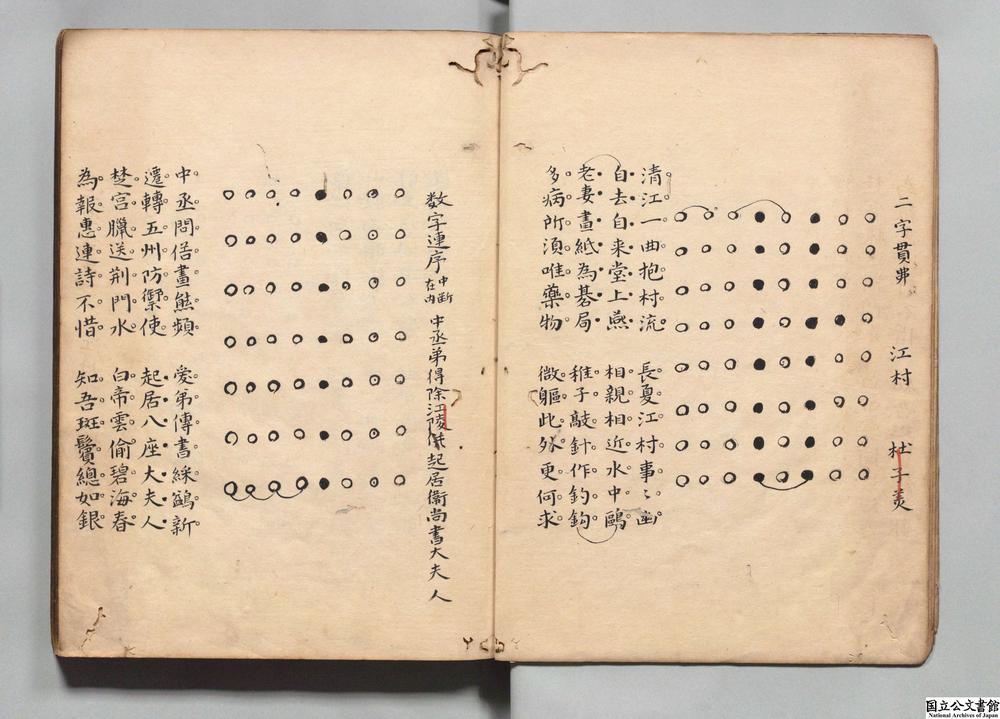 二字貫　江村　杜子美
清江一曲抱村流　長夏江村事〻幽
自去自来堂上燕　相親相近水中鷗
老妻畫紙為碁局　稚子敲針作釣鈎
多病所須唯藥物　微軀此外更何求
数字連序　中断在内　中丞弟得除江陵起居衛尚書大夫人
中丞問俗畫熊頻　愛弟傳書綵鷁新
遷轉五州防禦使　起居八座大夫人
楚宮臘送荆門水　白帝雲偷碧海春
為報惠連詩不惜　知吾斑鬢總如銀
国立公文書館
National Archives of Japan